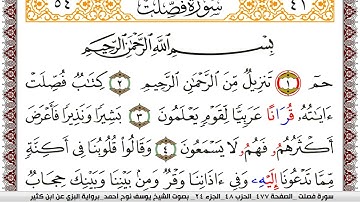 ٤١ سُورَةُ فُصِّلَتْ ٥٤
بِسْمِ اللَّهِ الرَّحْمَٰنِ الرَّحِيمِ
حمٓ ١ تَنزِيلٌ مِّنَ ٱلرَّحْمَٰنِ ٱلرَّحِيمِ ٢ كِتَٰبٌ فُصِّلَتْ
ءَايَٰتُهُۥ قُرَانًا عَرَبِيًّا لِّقَوْمٍ يَعْلَمُونَ ٣ بَشِيرًا وَنَذِيرًا فَأَعْرَضَ
أَكْثَرُهُمُۥ فَهُمُۥ لَا يَسْمَعُونَ ٤ وَقَالُوا۟ قُلُوبُنَا فِىٓ أَكِنَّةٍ
مِّمَّا تَدْعُونَآ إِلَيْهِۦ وَفِىٓ ءَاذَانِنَا وَقْرٌ وَمِنۢ بَيْنِنَا وَبَيْنِكَ حِجَابٌ
سورة فصلت - الصفحة ٤٧٧ الحزب ٤٨ الجزء ٢٤ - بصوت الشيخ يوسف نوح أحمد - برواية البزي عن ابن كثير